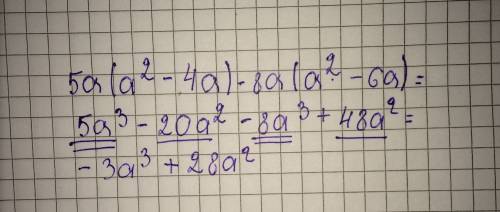 5a(a² - 4a) - 8a(a² - 6a) =
5a³ - 20a² - 8a³ + 48a² =
- 3a³ + 28a²